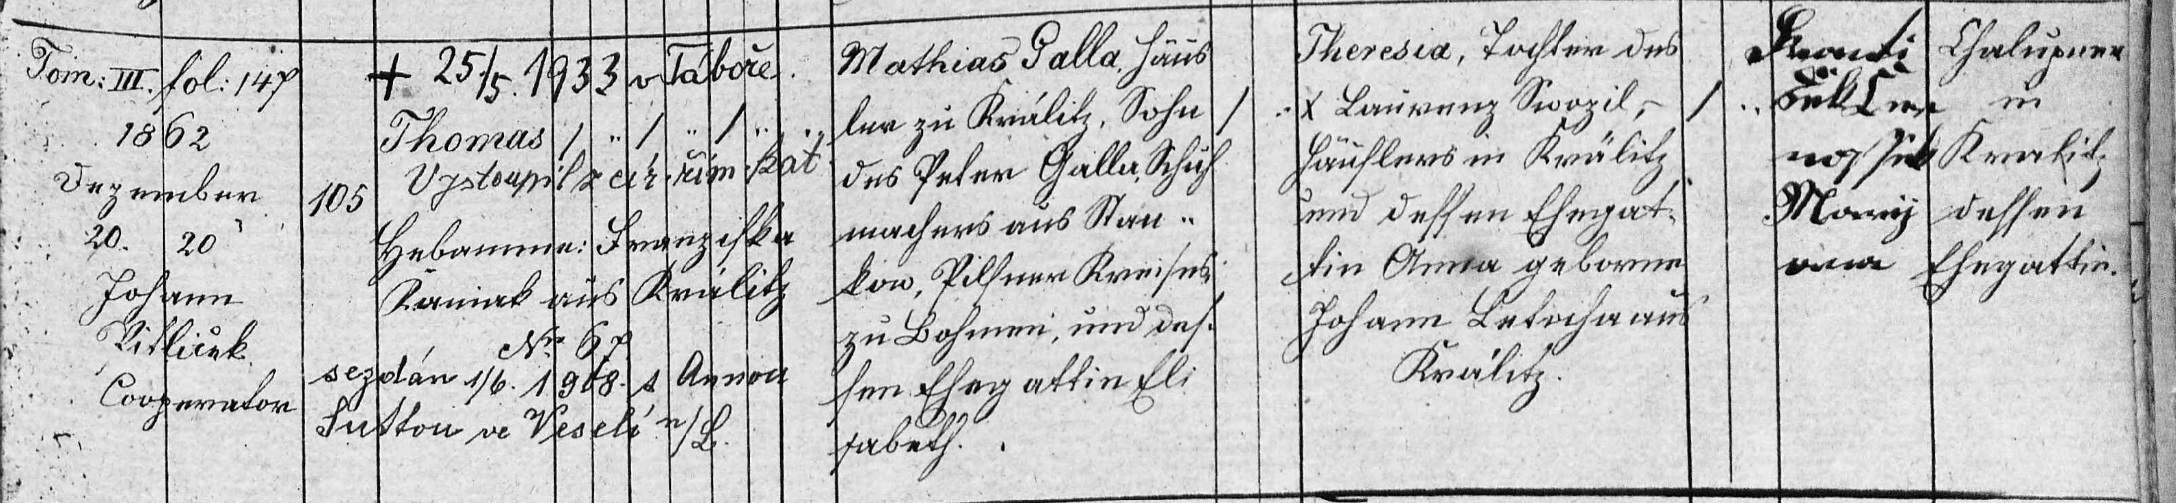 Tom: III. fol: 147
1862
Dezember
20. 20
Johann
Cooperator
105
+ 25/5. 1933 v Táboře.
Thomas / " / " / " "
Vystoupil z cír. řím. kat
Hebamme: Franziska
Kaniak aus Králitz
No 67
sezdán 1/6. 1908. s Annou
Suttou ve Veselí n/L.
Mathias Galla, Häus
ler zu Králitz, Sohn /
des Peter Galla, Schuh
machers aus Stan"
kow, Pilsner Kreises
zu Bohmen, und des-
sen Ehegattin Eli
sabeth.
Theresia, Tochter des
x Laurenz Swozil,
Häuslers in Králitz
und dessen Ehegat-
tin Anna geborne
Johann Letocha aus
Králitz.
Chalupner
in
Kralitz
dessen
Ehegattin.